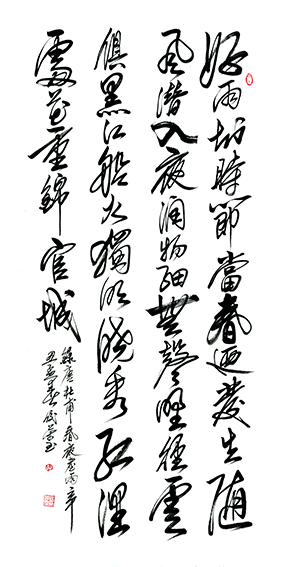 好雨知時節當春迺發生隨
風潛入夜潤物細無聲野徑雲
俱黑江船火獨明曉看紅濕
處花重錦官城
錄唐杜甫春夜喜雨辛
丑孟春